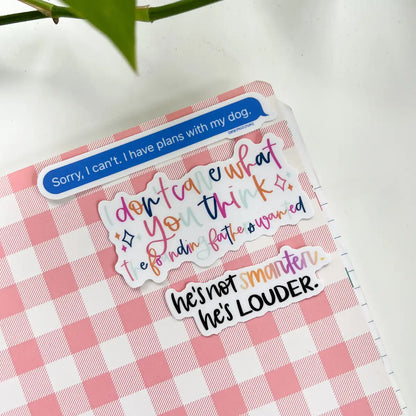 Sorry, I can't. I have plans with my dog.
I don't care what
you think
the founding fathers wanted
he's not smarter.
he's LOUDER.